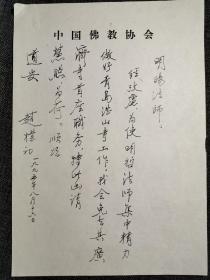 中国佛教协会
明旸法师：
经研究，为使明哲法师集中精力
做好青岛湛山寺工作，我会免去其广
济寺首座职务，特此函请
慧照为荷。顺颂
道安
赵朴初
一九九五年八月十六日